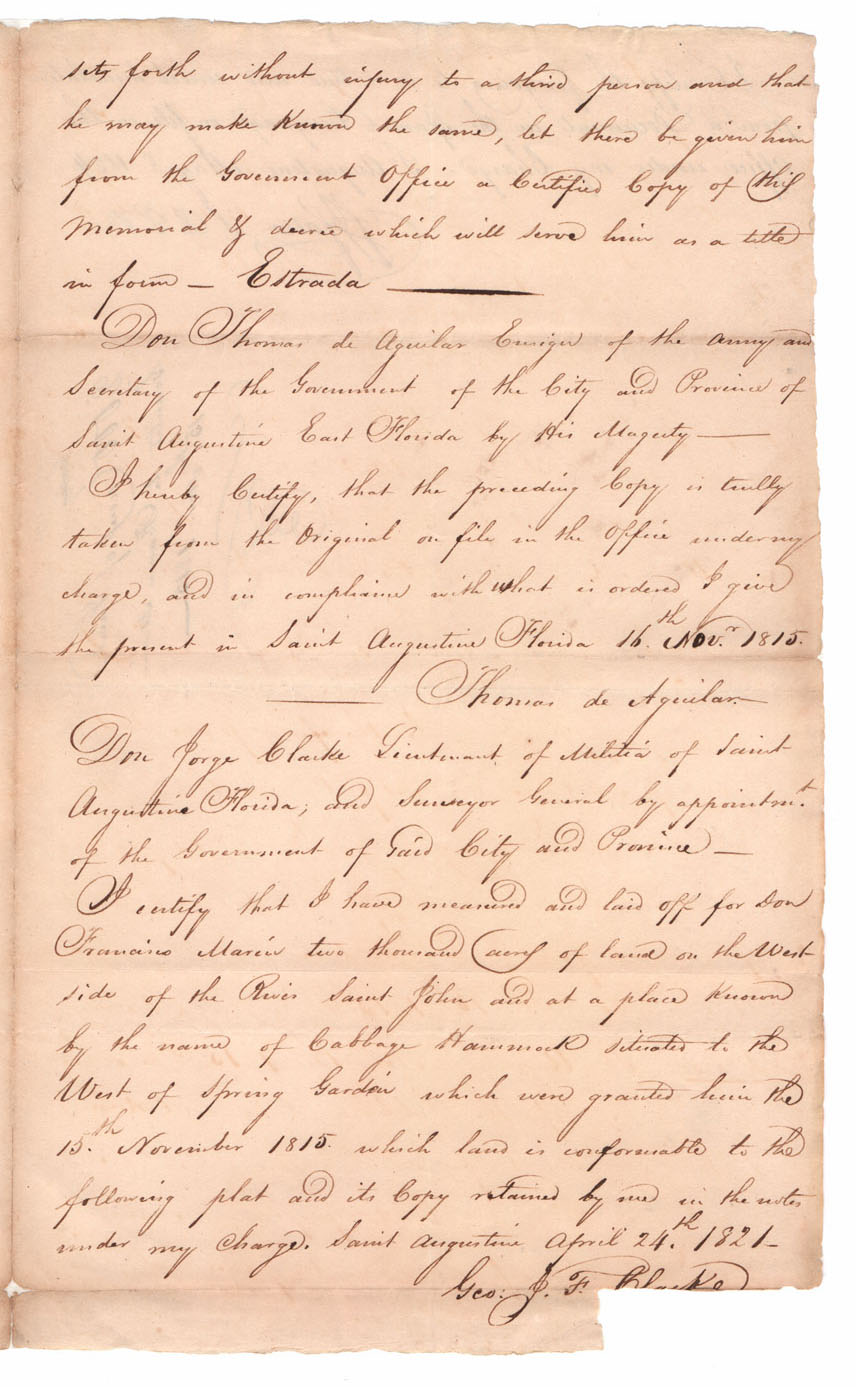 sets forth without injury to a third person and that
he may make Known the same, let there be given him
from the Government Office a Certified Copy of this
Memorial & decree which will serve him as a title
in form — Estrada ———
Don Thomas de Aguilar Ensign of the army and
Secretary of the Government of the City and Province of
Saint Augustine East Florida by His Magesty —
I hereby Certify, that the preceding Copy is trully
taken from the Original on file in the Office under my
charge, and in compliance with what is ordered I give
the present in Saint Augustine Florida 16.th Nov.r 1815.
——— Thomas de Aguilar.—
Don Jorge Clarke Lieutenant of Militia of Saint
Augustine Florida; and Surveyor General by appointm.t
of the Government of said City and Province —
I certify that I have measured and laid off for Don
Francisco Marin two thousand acres of land on the West
side of the River Saint John and at a place Known
by the name of Cabbage Hammock situated to the
West of Spring Garden which were granted him the
15.th November 1815. which land is conformable to the
following plat and its Copy retained by me in the notes
under my Charge. Saint Augustine April 24.th 1821—
Geo: J. F. Clarke